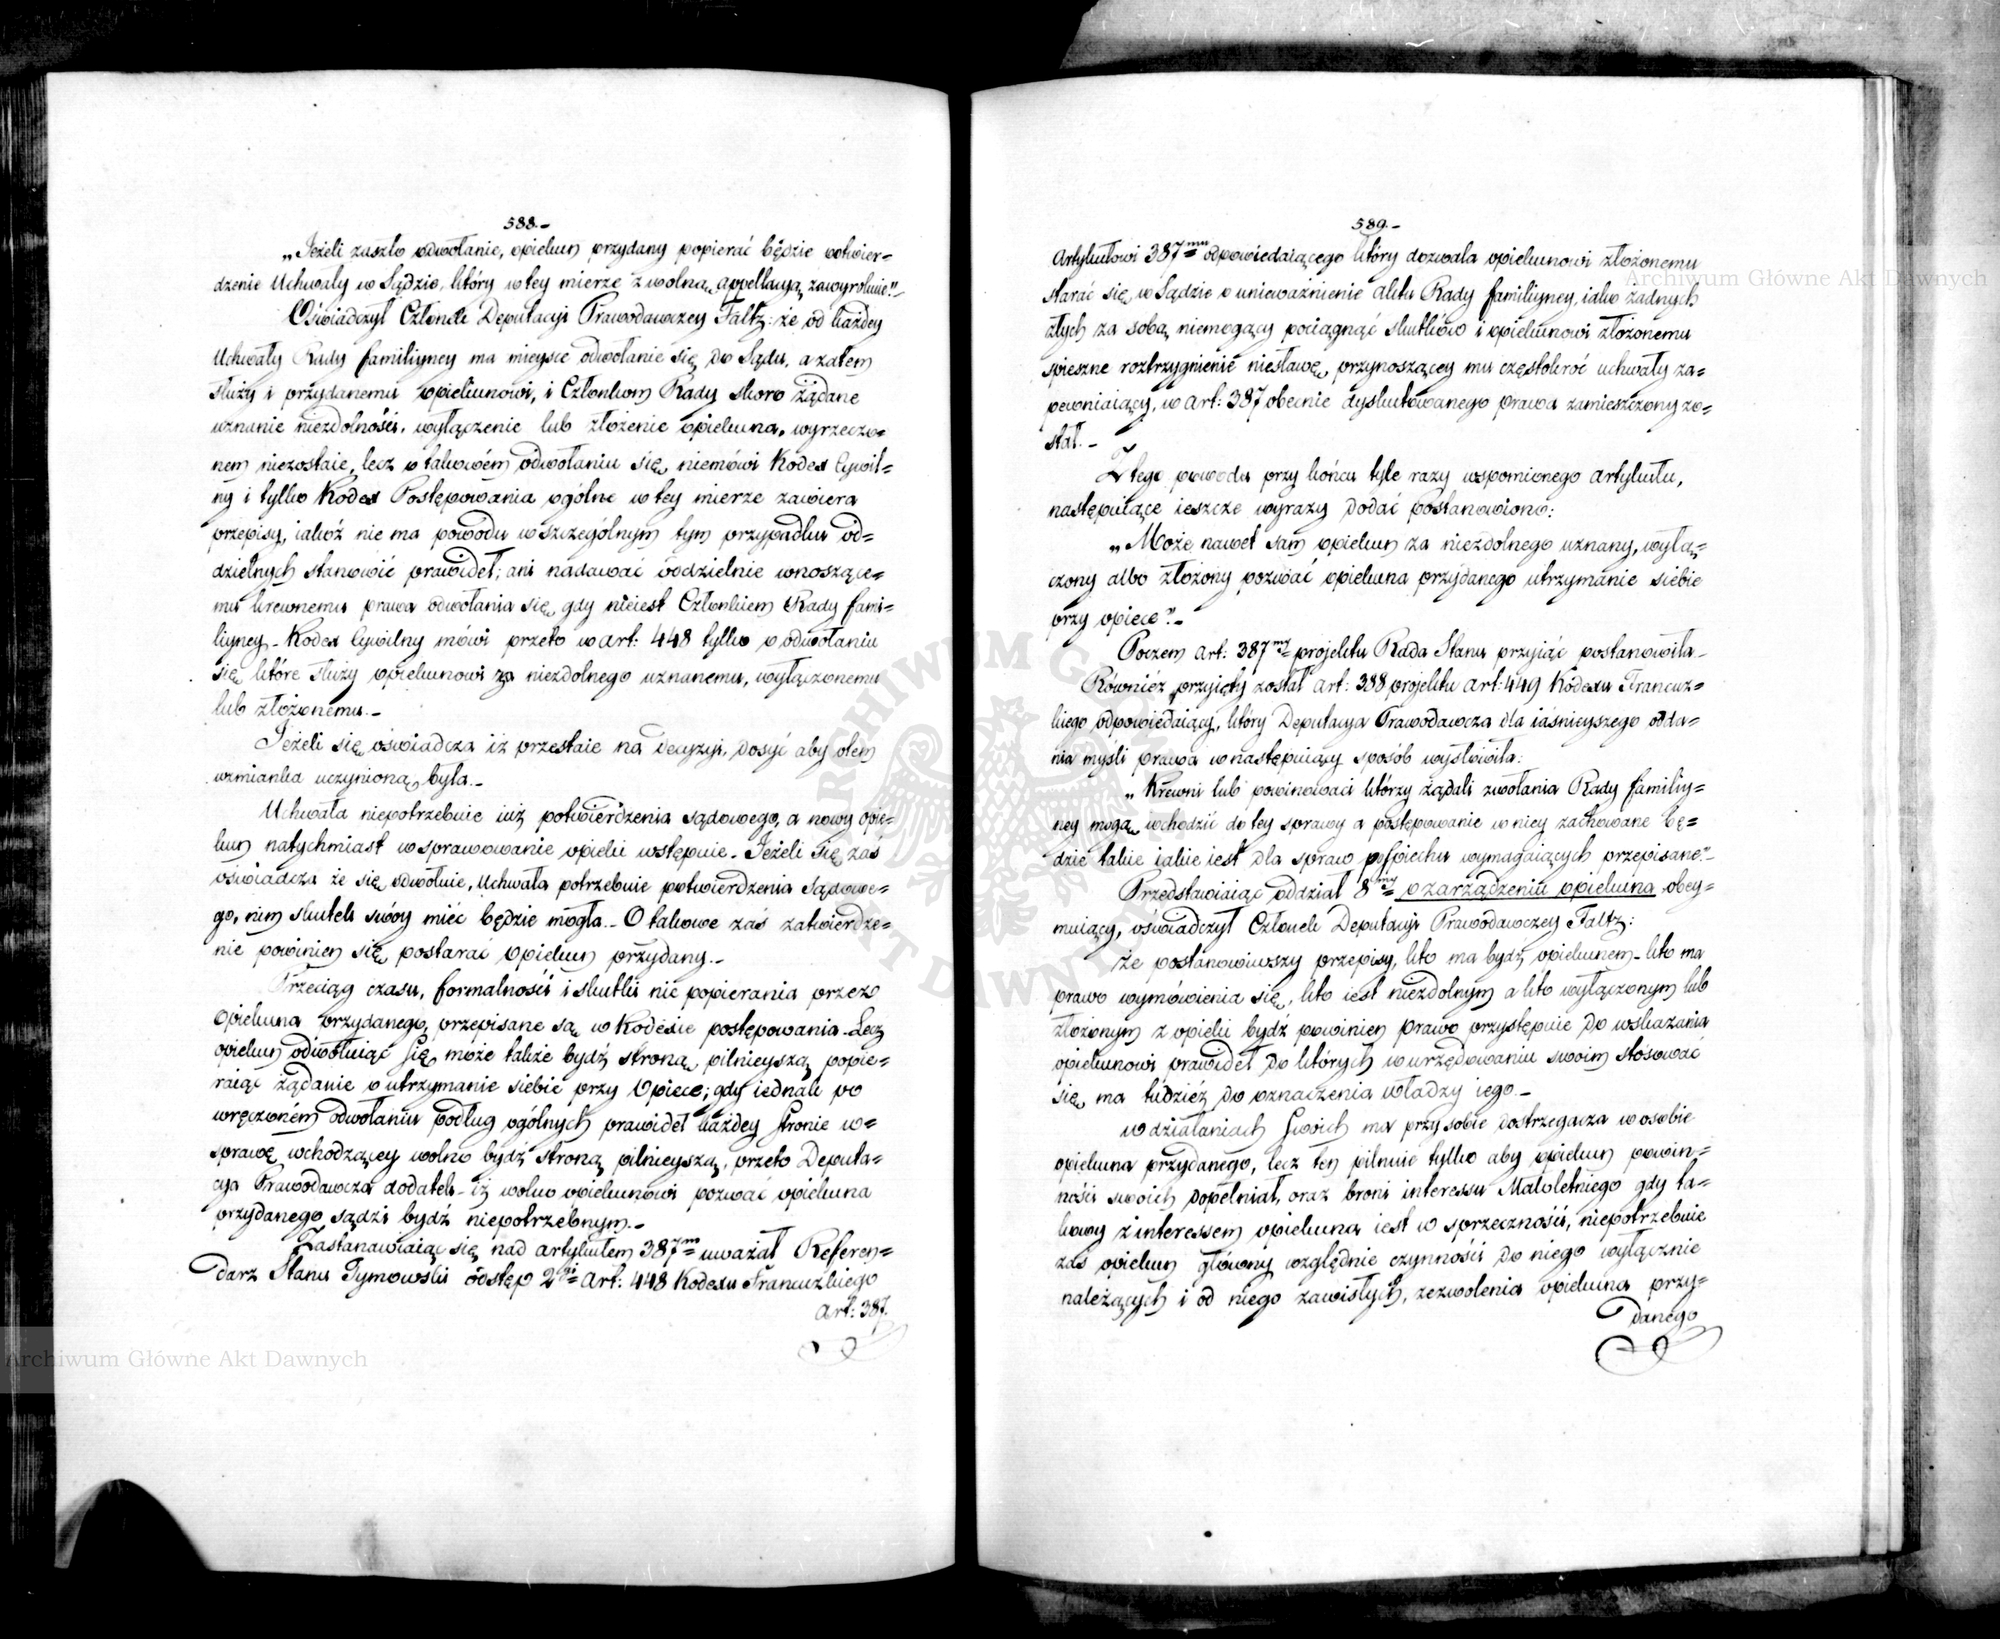 588.-
„Jeżeli zaszło odwołanie, opiekun przydany popierać będzie potwier=
dzenie Uchwały w Sądzie, który w tey mierze z wolną appellacyą zawyrokuie."-
Oświadczył Członek Deputacyi Prawodawczey Faltz: że od każdey
Uchwały Rady familiyney ma mieysce odwołanie się do Sądu, a zatem
służy i przydanemu opiekunowi, i Członkom Rady skoro żądane
uznanie niezdolności, wyłączenie lub złożenie opiekuna, wyrzeczo=
nem niezostaie, lecz o takowém odwołaniu się niemówi Kodex Cywil=
ny i tylko Kodex Postępowania ogólne w tey mierze zawiera
przepisy, iakoż nie ma powodu w szczególnym tym przypadku od=
dzielnych stanowić prawideł; ani nadawać oddzielnie wnoszące=
mu krewnemu prawa odwołania się, gdy nieiest Członkiem Rady fami=
liyney.- Kodex Cywilny mówi przeto w art: 448 tylko o odwołaniu
się które służy opiekunowi za niezdolnego uznanemu, wyłączonemu
lub złożonemu.-
Jeżeli się oświadcza iż przestaie na decyzyi, dosyć aby o tem
wzmianka uczynioną była.-
Uchwała niepotrzebuie iuż potwierdzenia sądowego, a nowy opie=
kun natychmiast w sprawowanie opieki wstępuie.- Jeżeli się zaś
oświadcza że się odwołuie, Uchwała potrzebuie potwierdzenia sądowe=
go, nim skutek swóy mieć będzie mogła.- O takowe zaś zatwierdze=
nie powinien się postarać opiekun przydany.-
Przeciąg czasu, formalności i skutki nie popierania przez
opiekuna przydanego, przepisane są w Kodexie postępowania. Lecz
opiekun odwołuiąc się, może także bydź stroną pilnieyszą popie=
raiąc żądanie o utrzymanie siebie przy Opiece; gdy iednak po
wręczoném odwołaniu podług ogólnych prawideł każdey stronie w=
sprawę wchodzącey wolno bydź stroną pilnieyszą, przeto Deputa=
cya Prawodawcza dodatek - iż wolno opiekunowi pozwać opiekuna
przydanego, sądzi bydź niepotrzebnym.-
Zastanawiaiąc się nad artykułem 387m uważał Referen=
darz Stanu Tymowski odstęp 2gi art: 448 Kodexu Francuzkiego
art: 387.
589.-
Artykułowi 387mu odpowiedaiącego który dozwala opiekunowi złożonemu
starać się w Sądzie o unieważnienie aktu Rady familiyney, iako żadnych
złych za sobą niemogący pociągnąć skutków i opiekunowi złożonemu
spieszne roztrzygnienie niesławę, przynoszącey mu częstokroć uchwały za=
pewniaiący, w art: 387 obecnie dyskutowanego prawa zamieszczony zo=
stał.-
Z tego powodu przy końcu tyle razy wspomionego artykułu,
następuiące ieszcze wyrazy dodać postanowiono:
„Może nawet sam opiekun za niezdolnego uznany, wyłą=
czony albo złożony pozwać opiekuna przydanego utrzymanie siebie
przy opiece".-
Poczem art: 387my projektu Rada Stanu przyiąć postanowiła.-
Równiéż przyięty został art: 388 projektu art: 449 Kodexu Francuz=
kiego odpowiedaiący, który Deputacya Prawodawcza dla iaśnieyszego odda=
nia myśli prawa w następuiący sposób wysłowiła:
„Krewni lub powinowaci którzy żądali zwołania Rady familiy=
ney mogą wchodzić do tey sprawy a postępowanie w niey zachowane bę=
dzie takie iakie iest dla spraw pospiechu wymagaiących przepisane."-
Przedstawiaiąc oddział 8my o zarządzeniu opiekuna obey=
muiący, oświadczył Członek Deputacyi Prawodawczey Faltz:
że postanowiwszy przepisy, kto ma bydź opiekunem - kto ma
prawo wymówienia się, kto iest niezdolnym a kto wyłączonym lub
złożonym z opieki bydź powinien prawo przystępuie do wskazania
opiekunowi prawideł do których w urzędowaniu swoim stosować
się ma tudzież do oznaczenia władzy iego.-
w działaniach swoich ma przy sobie dostrzegacza w osobie
opiekuna przydanego, lecz ten pilnuie tylko aby opiekun powin=
ności swoich dopełniał, oraz broni interessu Małoletniego gdy ta=
kowy z interessem opiekuna iest w sprzeczności, niepotrzebuie
zaś opiekun główny względnie czynności do niego wyłącznie
należących i od niego zawisłych, zezwolenia opiekuna przy=
danego
Archiwum Główne Akt Dawnych
Archiwum Główne Akt Dawnych
ARCHIWUM GŁÓWNE AKT DAWNYCH